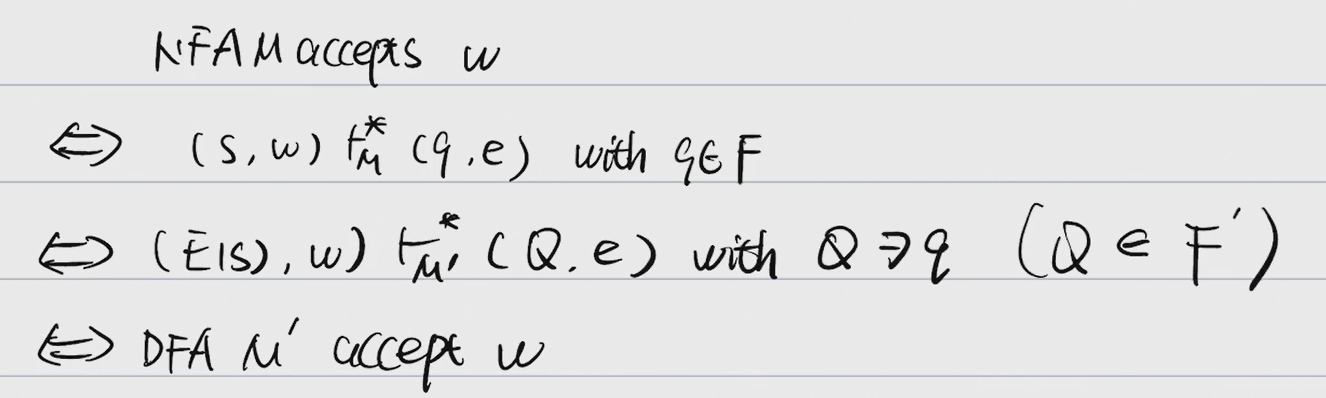 NFA M accepts w
⇔ (s, w) ⊢*_M (q, e) with q∈F
⇔ (E(s), w) ⊢*_M' (Q, e) with Q∋q (Q ∈ F')
⇔ DFA M' accept w